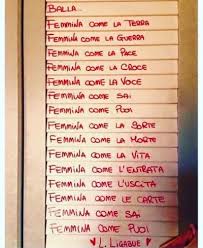 BALLA...
FEMMINA COME LA TERRA
FEMMINA COME LA GUERRA
FEMMINA COME LA PACE
FEMMINA COME LA CROCE
FEMMINA COME LA VOCE
FEMMINA COME SAI
FEMMINA COME PUOI
FEMMINA COME LA SORTE
FEMMINA COME LA MORTE
FEMMINA COME LA VITA
FEMMINA COME L'ENTRATA
FEMMINA COME L'USCITA
FEMMINA COME LE CARTE
FEMMINA COME SAI
FEMMINA COME PUOI
L. LIGABUE